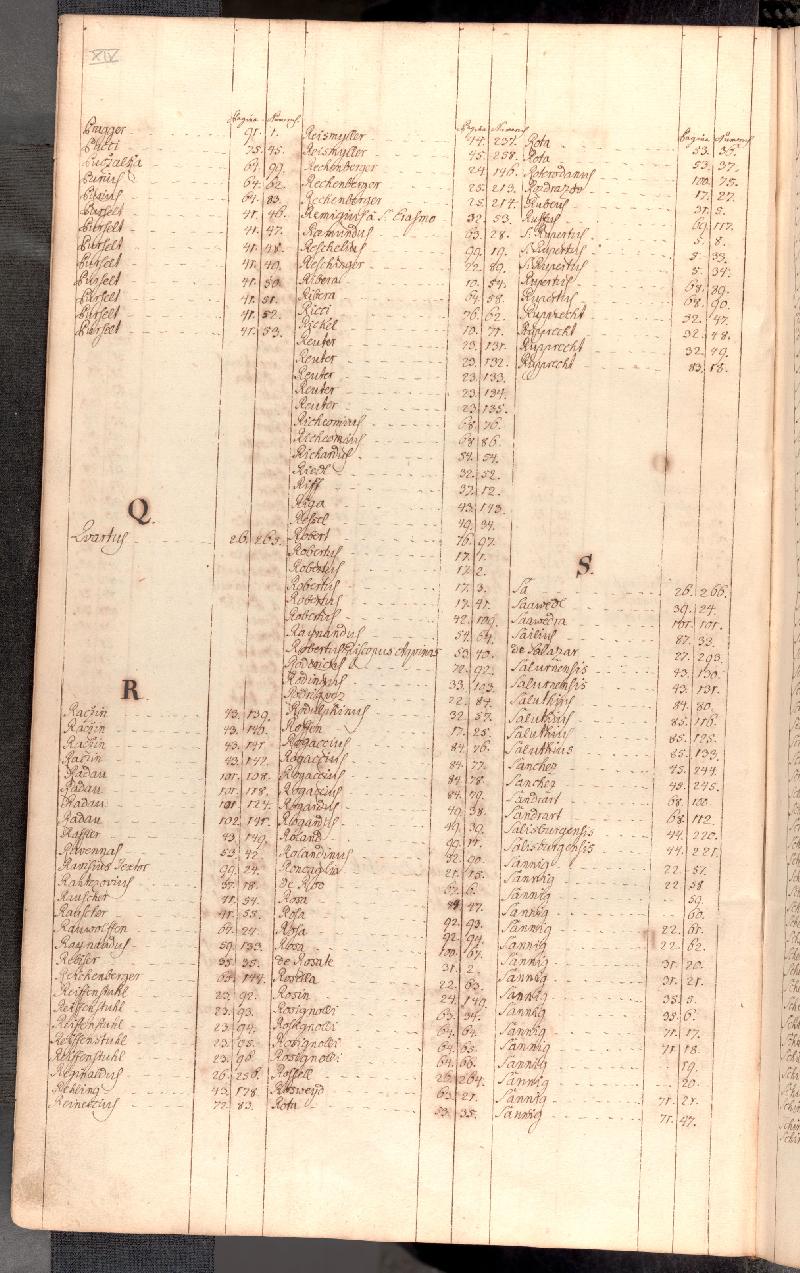 XIV
Pagina Numerus
Prager 91. 1.
Pucci 75. 45.
64. 99.
64. 62.
64. 83.
Purselt 41. 46.
Purselt 41. 47.
Purselt 41. 48.
Purselt 41. 49.
Purselt 41. 50.
Purselt 41. 51.
Purselt 41. 52.
Purselt 41. 53.
Q.
Qvartus 26. 263.
R
Racjin 43. 139.
Racjin 43. 140.
Racjin 43. 141.
Racjin 43. 142.
Radau 101. 108.
Radau 101. 118.
Radau 101 124.
Radau 102. 141.
Rassler 43. 149.
Ravennas 53. 42.
Ravisius Textor 99. 24.
37. 18.
Rauscher 41. 54.
Rauscher 41. 55.
Rauwolffen 67. 24.
Raynaudus 59. 133.
Rebser 35. 35.
Reichenberger 65. 144.
Reiffenstuhl 23. 92.
Reiffenstuhl 23. 93.
Reiffenstuhl 23. 94.
Reiffenstuhl 23. 95.
Reiffenstuhl 23. 96.
Reginaldus 26. 256.
Rehling 43. 178.
Reineccius 72. 83.
Pagina Numerus
Reismyller 44. 257.
Reismyller 45. 258.
Rechenberger 24. 146.
Rechenberger 25. 213.
Rechenberger 25. 214.
Remigius à S. Erasmo 32. 53.
Remundus 63. 28.
Reschelius 99. 19.
Reschinger 72. 89.
Ribera 10. 54.
Ribera 64. 58.
Ricci 76. 62.
Rickel 10. 71.
Reuter 23. 131.
Reuter 23. 132.
Reuter 23. 133.
Reuter 23. 134.
Reuter 23. 135.
Richeomus 68. 76.
Richeomus 68. 86.
Richardus 54. 54.
Riedl 32. 52.
Riff 37. 12.
Riga 43. 143.
49. 34.
Robert 76. 97.
Robertus 17. 1.
Robertus 17. 2.
Robertus 17. 3.
Robertus 17. 41.
Robertus 42. 109.
Raynaudus 54. 64.
Robertus Episcopus Aquinas 53. 40.
Rodericus 72. 92.
Rodingus 33. 103.
Rodriquez 22. 84.
Rodulphinus 32. 57.
Roffen 17. 25.
Rogaccius 84. 76.
Rogaccius 84. 77.
Rogaccius 84. 78.
Rogaccius 84. 79.
Rogardus 49. 38.
Rogardus 49. 39.
Roland 99. 17.
Rolandinus 32. 90.
Roncaglia 21. 15.
de Roo 67. 6.
Rosa 84. 47.
Rosa 92. 93.
Rosa 92. 94.
Rosa 100. 67.
de Rosate 31. 2.
Rosella 22. 63.
Rosin 24. 149.
Rosignolli 63. 34.
Rosignolli 64. 64.
Rosignolli 64. 65.
Rosignolli 64. 66.
Rossell 26. 264.
Rosweyd 63. 21.
Rota 53. 35.
Pagina Numerus
Rota 53. 36.
Rota 53. 37.
Roterodamus 100. 75.
17. 27.
Rubeus 31. 5.
Ruffus 69. 117.
S. Rupertus 5. 8.
S. Rupertus 5. 33.
S. Rupertus 5. 34.
Rupertus 68. 89.
Rupertus 68. 90.
Rupprecht 32. 47.
Rupprecht 32. 48.
Rupprecht 32. 49.
Rupprecht 83. 18.
S.
Sa 26. 266.
Saawedl 39. 24.
Saawedra 101. 101.
Sailius 87. 33.
de Salazar 27. 293.
Salurnensis 43. 130.
Salurnensis 43. 131.
Saluthius 84. 80.
Saluthius 85. 116.
Saluthius 85. 125.
Saluthius 85. 133.
Sanchez 45. 244.
Sanchez 45. 245.
Sandrart 68. 100.
Sandrart 68. 112.
Salisburgensis 44. 220.
Salisburgensis 44. 221.
Sannig 22. 57.
Sannig 22. 58
Sannig 59.
Sannig 60.
Sannig 22. 61.
Sannig 22. 62.
Sannig 31. 20.
Sannig 31. 21.
Sannig 35. 5.
Sannig 35. 6.
Sannig 71. 17.
Sannig 71. 18.
Sannig 19.
Sannig 20.
Sannig 71. 21.
Sannig 71. 47.